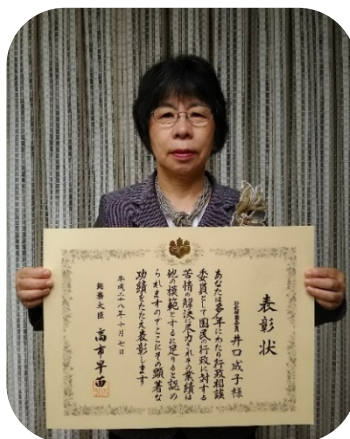 表彰状
行政相談委員 井口成子様
あなたは多年にわたり行政相談
委員として国民の行政に対する
苦情の解決に尽力されその業績は
他の模範とするに足りると認め
られますのでここにその顕著な
功績をたたえ表彰します
平成二十八年十月七日
総務大臣 高市早苗